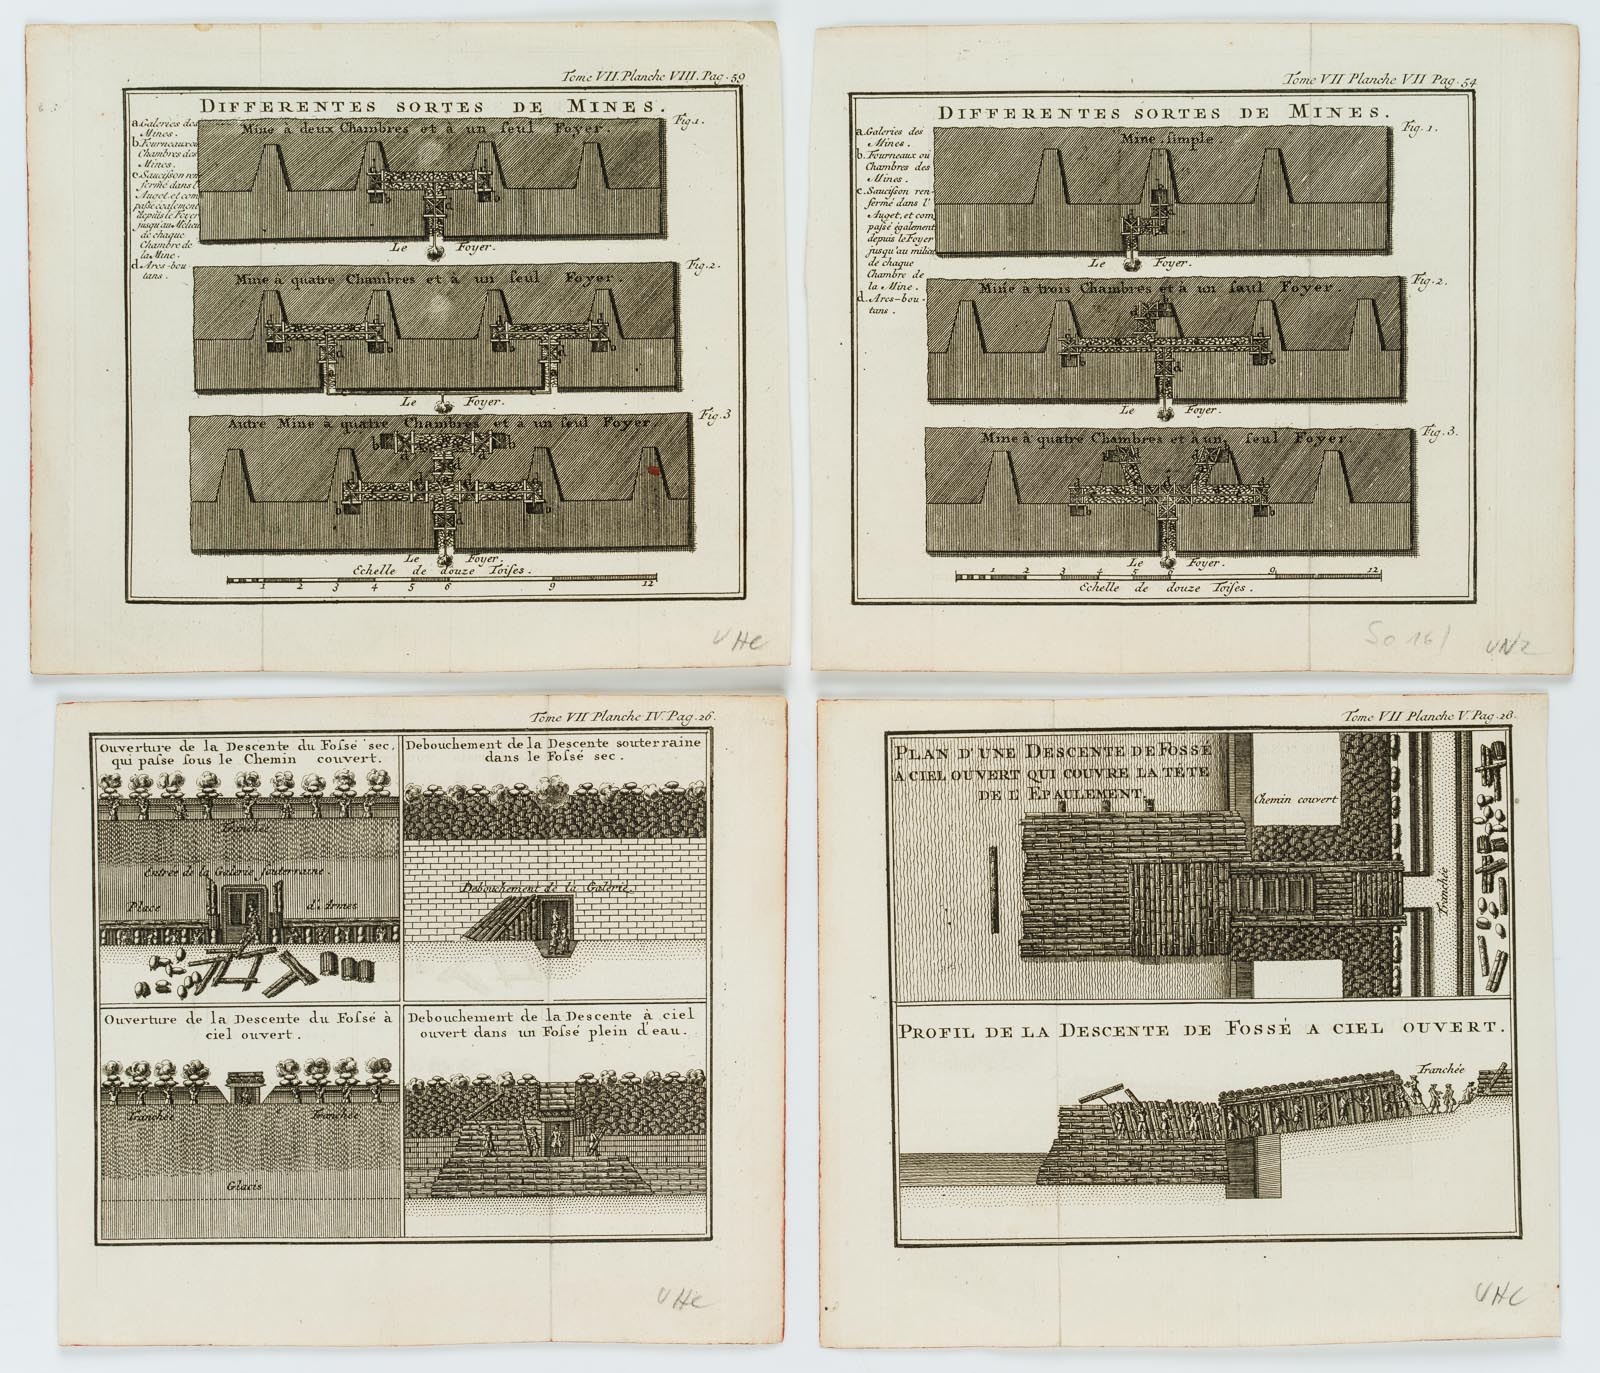 Tome VII. Planche VIII. Pag. 59
DIFFERENTES SORTES DE MINES.
a. Galeries des
Mines.
b. Fourneaux ou
Chambres des
Mines.
c. Saucisson ren
fermé dans l'
Auget, et com
passé egalement
depuis le Foyer
jusqu'au Milieu
de chaque
Chambre de
la Mine.
d. Arcs-bou
tans.
Mine à deux Chambres et à un seul Foyer.
Fig. 1.
Le Foyer.
Mine à quatre Chambres et à un seul Foyer.
Fig. 2.
Le Foyer.
Autre Mine à quatre Chambres et à un seul Foyer.
Fig. 3
Le Foyer.
Echelle de douze Toises.
1 2 3 4 5 6 9 12
VHC
Tome VII Planche VII Pag. 54
DIFFERENTES SORTES DE MINES.
a. Galeries des
Mines.
b. Fourneaux ou
Chambres des
Mines.
c. Saucisson ren-
fermé dans l'
Auget, et com
passé également
depuis le Foyer
jusqu'au milieu
de chaque
Chambre de
la Mine.
d. Arcs-bou-
tans.
Mine simple.
Fig. 1.
Le Foyer.
Mine à trois Chambres et à un saul Foyer.
Fig. 2.
Le Foyer.
Mine à quatre Chambres et à un seul Foyer.
Fig. 3.
Le Foyer.
1 2 3 4 5 6 9 12
Echelle de douze Toises.
Tome VII Planche IV. Pag. 26.
Ouverture de la Descente du Fossé sec,
qui passe sous le Chemin couvert.
Tranchée
Entrée de la Galerie souterraine.
Place d'Armes
Debouchement de la Descente souterraine
dans le Fossé sec.
Debouchement de la Galerie.
Ouverture de la Descente du Fossé à
ciel ouvert.
Tranchée Tranchée
Glacis
Debouchement de la Descente à ciel
ouvert dans un Fossé plein d'eau.
VHC
Tome VII Planche V. Pag. 28.
PLAN D'UNE DESCENTE DE FOSSE
A CIEL OUVERT QUI COUVRE LA TÉTE
DE L'EPAULEMENT.
Chemin couvert
Tranchée
PROFIL DE LA DESCENTE DE FOSSÉ A CIEL OUVERT.
Tranchée
VHC